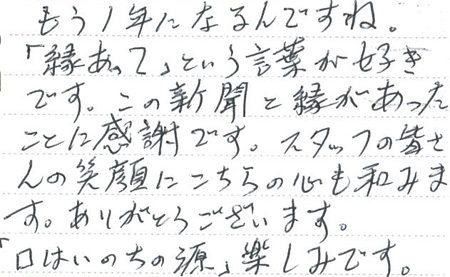 もう1年になるんですね。
「縁あって」という言葉が好き
です。この新聞と縁があった
ことに感謝です。スタッフの皆さ
んの笑顔にこちらの心も和みま
す。ありがとうございます。
「口はいのちの源」楽しみです。